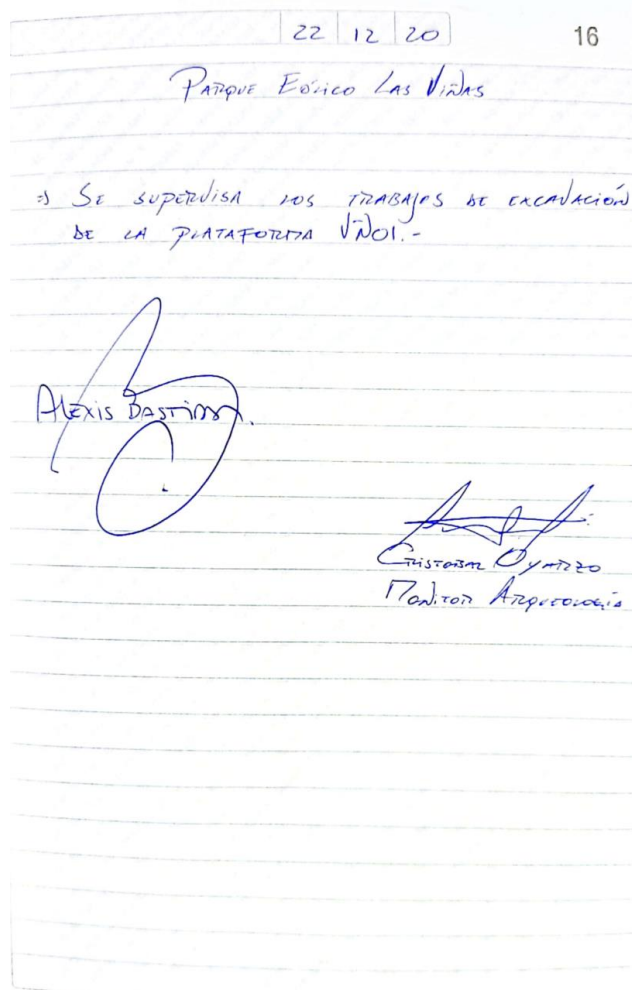 22 12 20
16
PARQUE EÓLICO LAS VIÑAS
=> SE SUPERVISA LOS TRABAJOS DE EXCAVACIÓN
DE LA PLATAFORMA VÑ01.-
ALEXIS BASTIDAS.
CRISTOBAL OYARZO
MONITOR ARQUEOLOGÍA